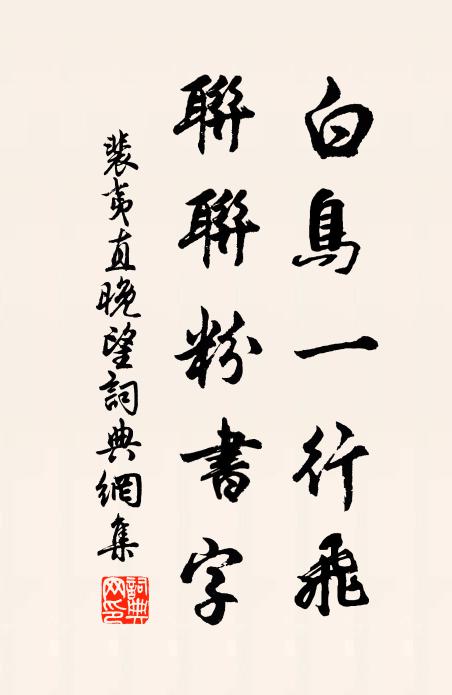 白鳥一行飛
聯聯粉書字
裴夷直晚望詞典網集
詞典網印